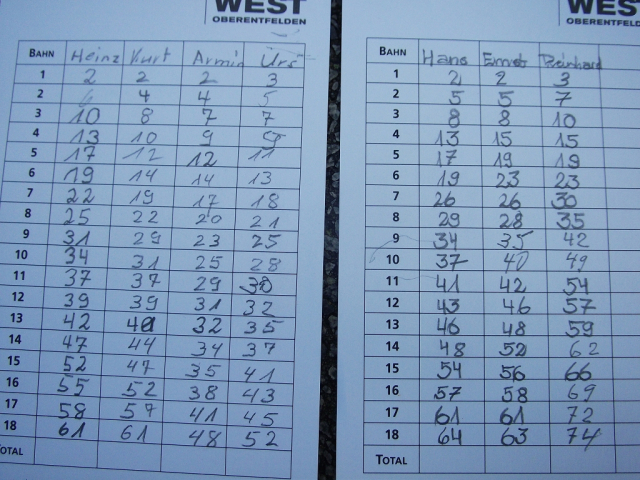 WEST
OBERENTFELDEN
BAHN Heinz Kurt Armin Urs
1 2 2 2 3
2 6 4 4 5
3 10 8 7 7
4 13 10 9 9
5 17 12 12 11
6 19 14 14 13
7 22 19 17 18
8 25 22 20 21
9 31 29 23 25
10 34 31 25 28
11 37 37 29 30
12 39 39 31 32
13 42 40 32 35
14 47 44 34 37
15 52 47 35 41
16 55 52 38 43
17 58 57 41 45
18 61 61 48 52
TOTAL
WEST
OBERENTFELDEN
BAHN Hans Ernst Reinhard
1 2 2 3
2 5 5 7
3 8 8 10
4 13 15 15
5 17 19 19
6 19 23 23
7 26 26 30
8 29 28 35
9 34 35 42
10 37 40 49
11 41 42 54
12 43 46 57
13 46 48 59
14 48 52 62
15 54 56 66
16 57 58 69
17 61 61 72
18 64 63 74
TOTAL